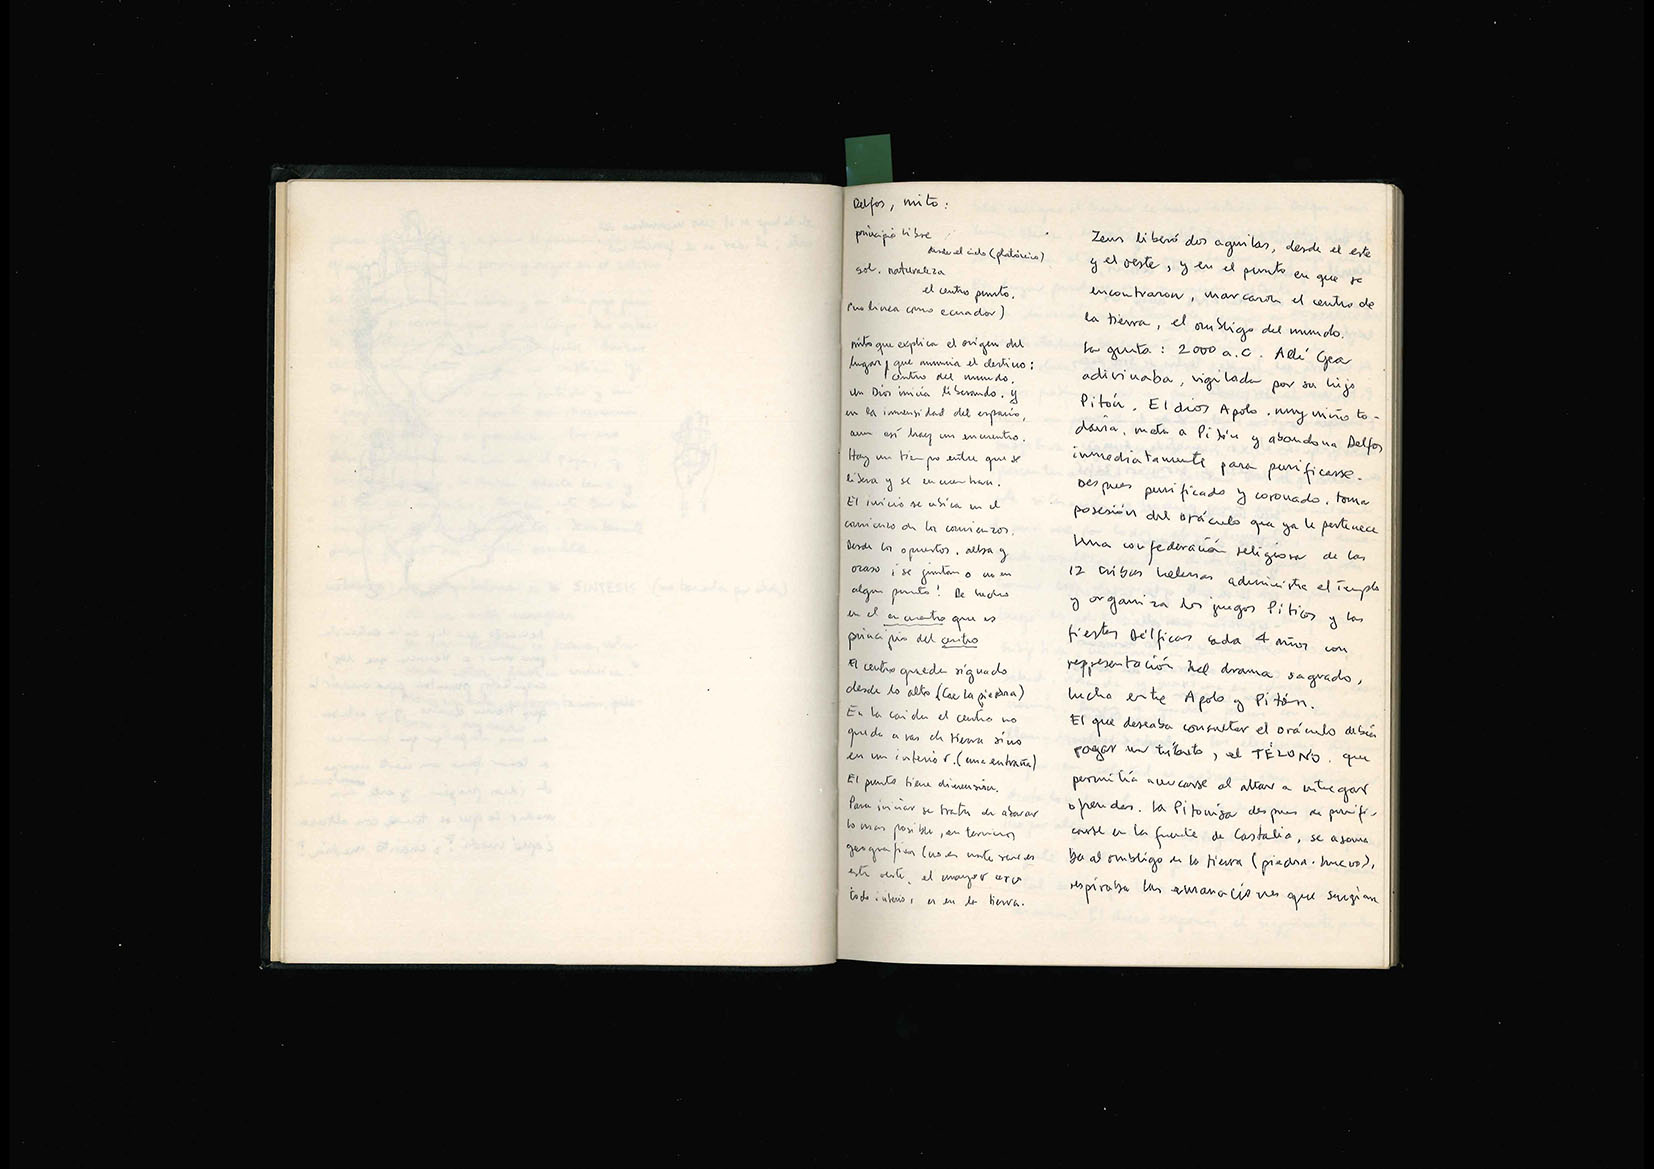 Delfos, mito:
principio libre
desde el cielo (platónico)
sol. naturaleza
el centro punto.
(no linea como ecuador)
mito que explica el origen del
lugar, que anuncia el destino:
centro del mundo.
un Dios inicia liberando. y
en la inmensidad del espacio,
aun así hay un encuentro.
Hay un tiempo entre que se
libera y se encuentran.
El inicio se ubica en el
comienzo de los comienzos.
Desde los opuestos. alba y
ocaso ¡se juntan o no en
algun punto! De hecho
en el encuentro que es
principio del centro
El centro queda signado
desde lo alto (cae la piedra)
En la caida el centro no
queda a ras de tierra sino
en un interior. (una entraña)
El punto tiene dimensión.
Para iniciar se trata de abarcar
lo mas posible, en terminos
geograficos (no es norte sur es
este oeste, el mayor arco
todo interior, es en la tierra.
Zeus liberó dos aguilas, desde el este
y el oeste, y en el punto en que se
encontraron, marcaron el centro de
la tierra, el ombligo del mundo.
La gruta: 2000 a.C. Allí Gea
adivinaba, vigilada por su hijo
Pitón. El dios Apolo. muy niño to-
davía. mata a Pitón y abandona Delfos
inmediatamente para purificarse.
Despues purificado y coronado. toma
posesión del oráculo que ya le pertenece
Una confederación religiosa de las
12 tribus helenas administra el templo
y organiza los juegos Píticos y las
fiestas Délficas cada 4 años con
representación del drama sagrado,
lucha entre Apolo y Pitón.
El que deseaba consultar el oráculo debía
pagar un tributo, el TÉLONO. que
permitía acercarse al altar a entregar
ofrendas. La Pitonisa despues de purifi-
carse en la fuente de Castalia, se asoma
ba al ombligo de la tierra (piedra-huevo),
respiraba las emanaciones que surgían